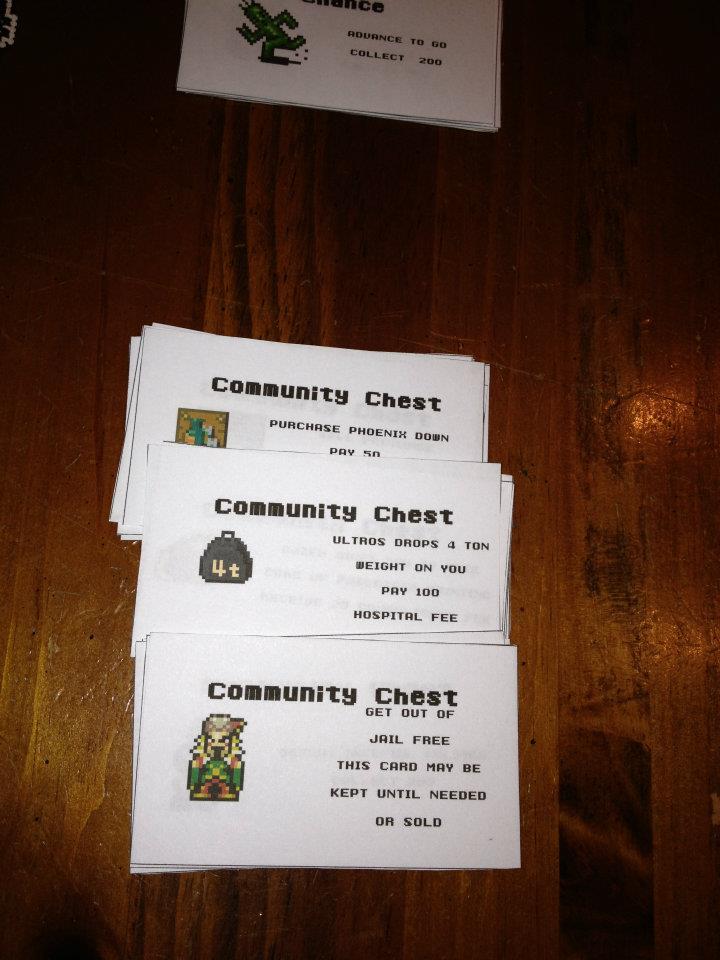 Chance
ADVANCE TO GO
COLLECT 200
Community Chest
PURCHASE PHOENIX DOWN
PAY 50
Community Chest
4t
ULTROS DROPS 4 TON
WEIGHT ON YOU
PAY 100
HOSPITAL FEE
Community Chest
GET OUT OF
JAIL FREE
THIS CARD MAY BE
KEPT UNTIL NEEDED
OR SOLD